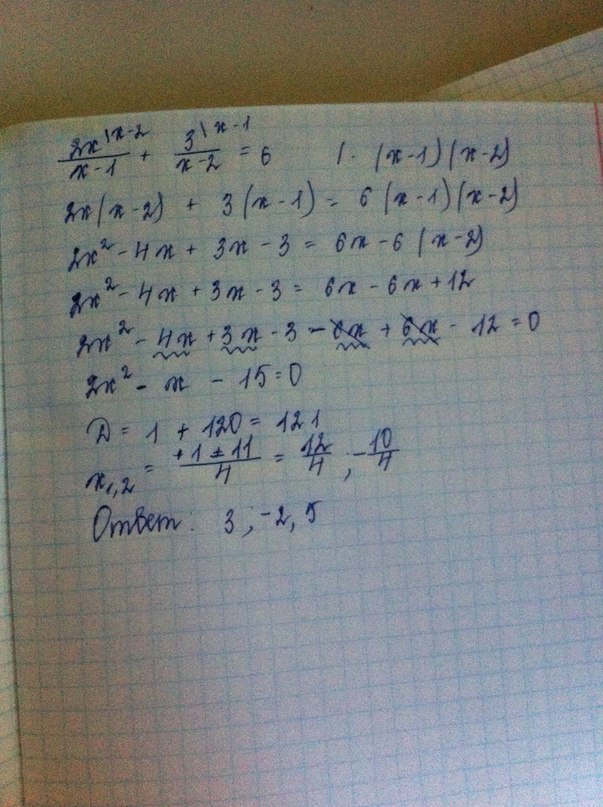 2x\x-2 / x-1 + 3\x-1 / x-2 = 6 |· (x-1)(x-2)
2x(x-2) + 3(x-1) = 6(x-1)(x-2)
2x² - 4x + 3x - 3 = 6x - 6(x-2)
2x² - 4x + 3x - 3 = 6x - 6x + 12
2x² - 4x + 3x - 3 - 6x + 6x - 12 = 0
2x² - x - 15 = 0
D = 1 + 120 = 121
x₁,₂ = +1 ± 11 / 4 = 12/4 ; -10/4
Ответ: 3 ; -2,5